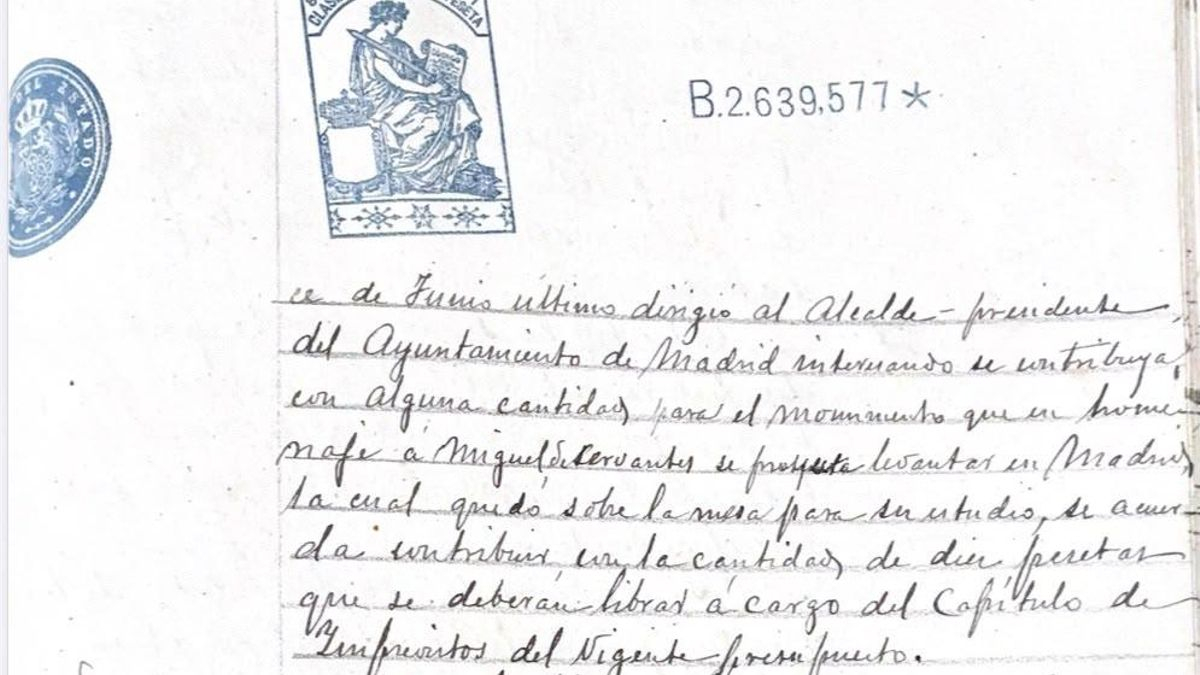 CLAS
PESETA
DEL ESTADO
B.2.639,577*
ce de Junio último dirigió al Alcalde-presidente,
del Ayuntamiento de Madrid interesando se contribuya
con alguna cantidad, para el monumento que en home-
naje a Miguel de Cervantes se proyecta levantar en Madrid,
la cual quedó sobre la mesa para su estudio, se acuer-
da contribuir, con la cantidad, de diez pesetas
que se deberán librar á cargo del Capítulo de
Imprevistos del Vigente presupuesto.